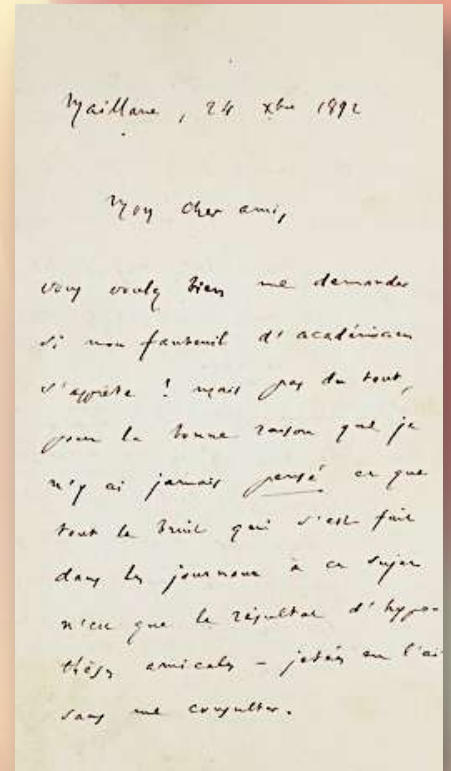 Maillane, 24 xbre 1892
Mon cher ami,
vous voulez bien me demander
si mon fauteuil d'académicien
s'apprête ! mais pas du tout,
pour la bonne raison que je
n'y ai jamais pensé et que
tout le bruit qui s'est fait
dans les journaux à ce sujet
n'est que le résultat d'hypo-
thèses amicales - jetées en l'ai
sans me consulter.